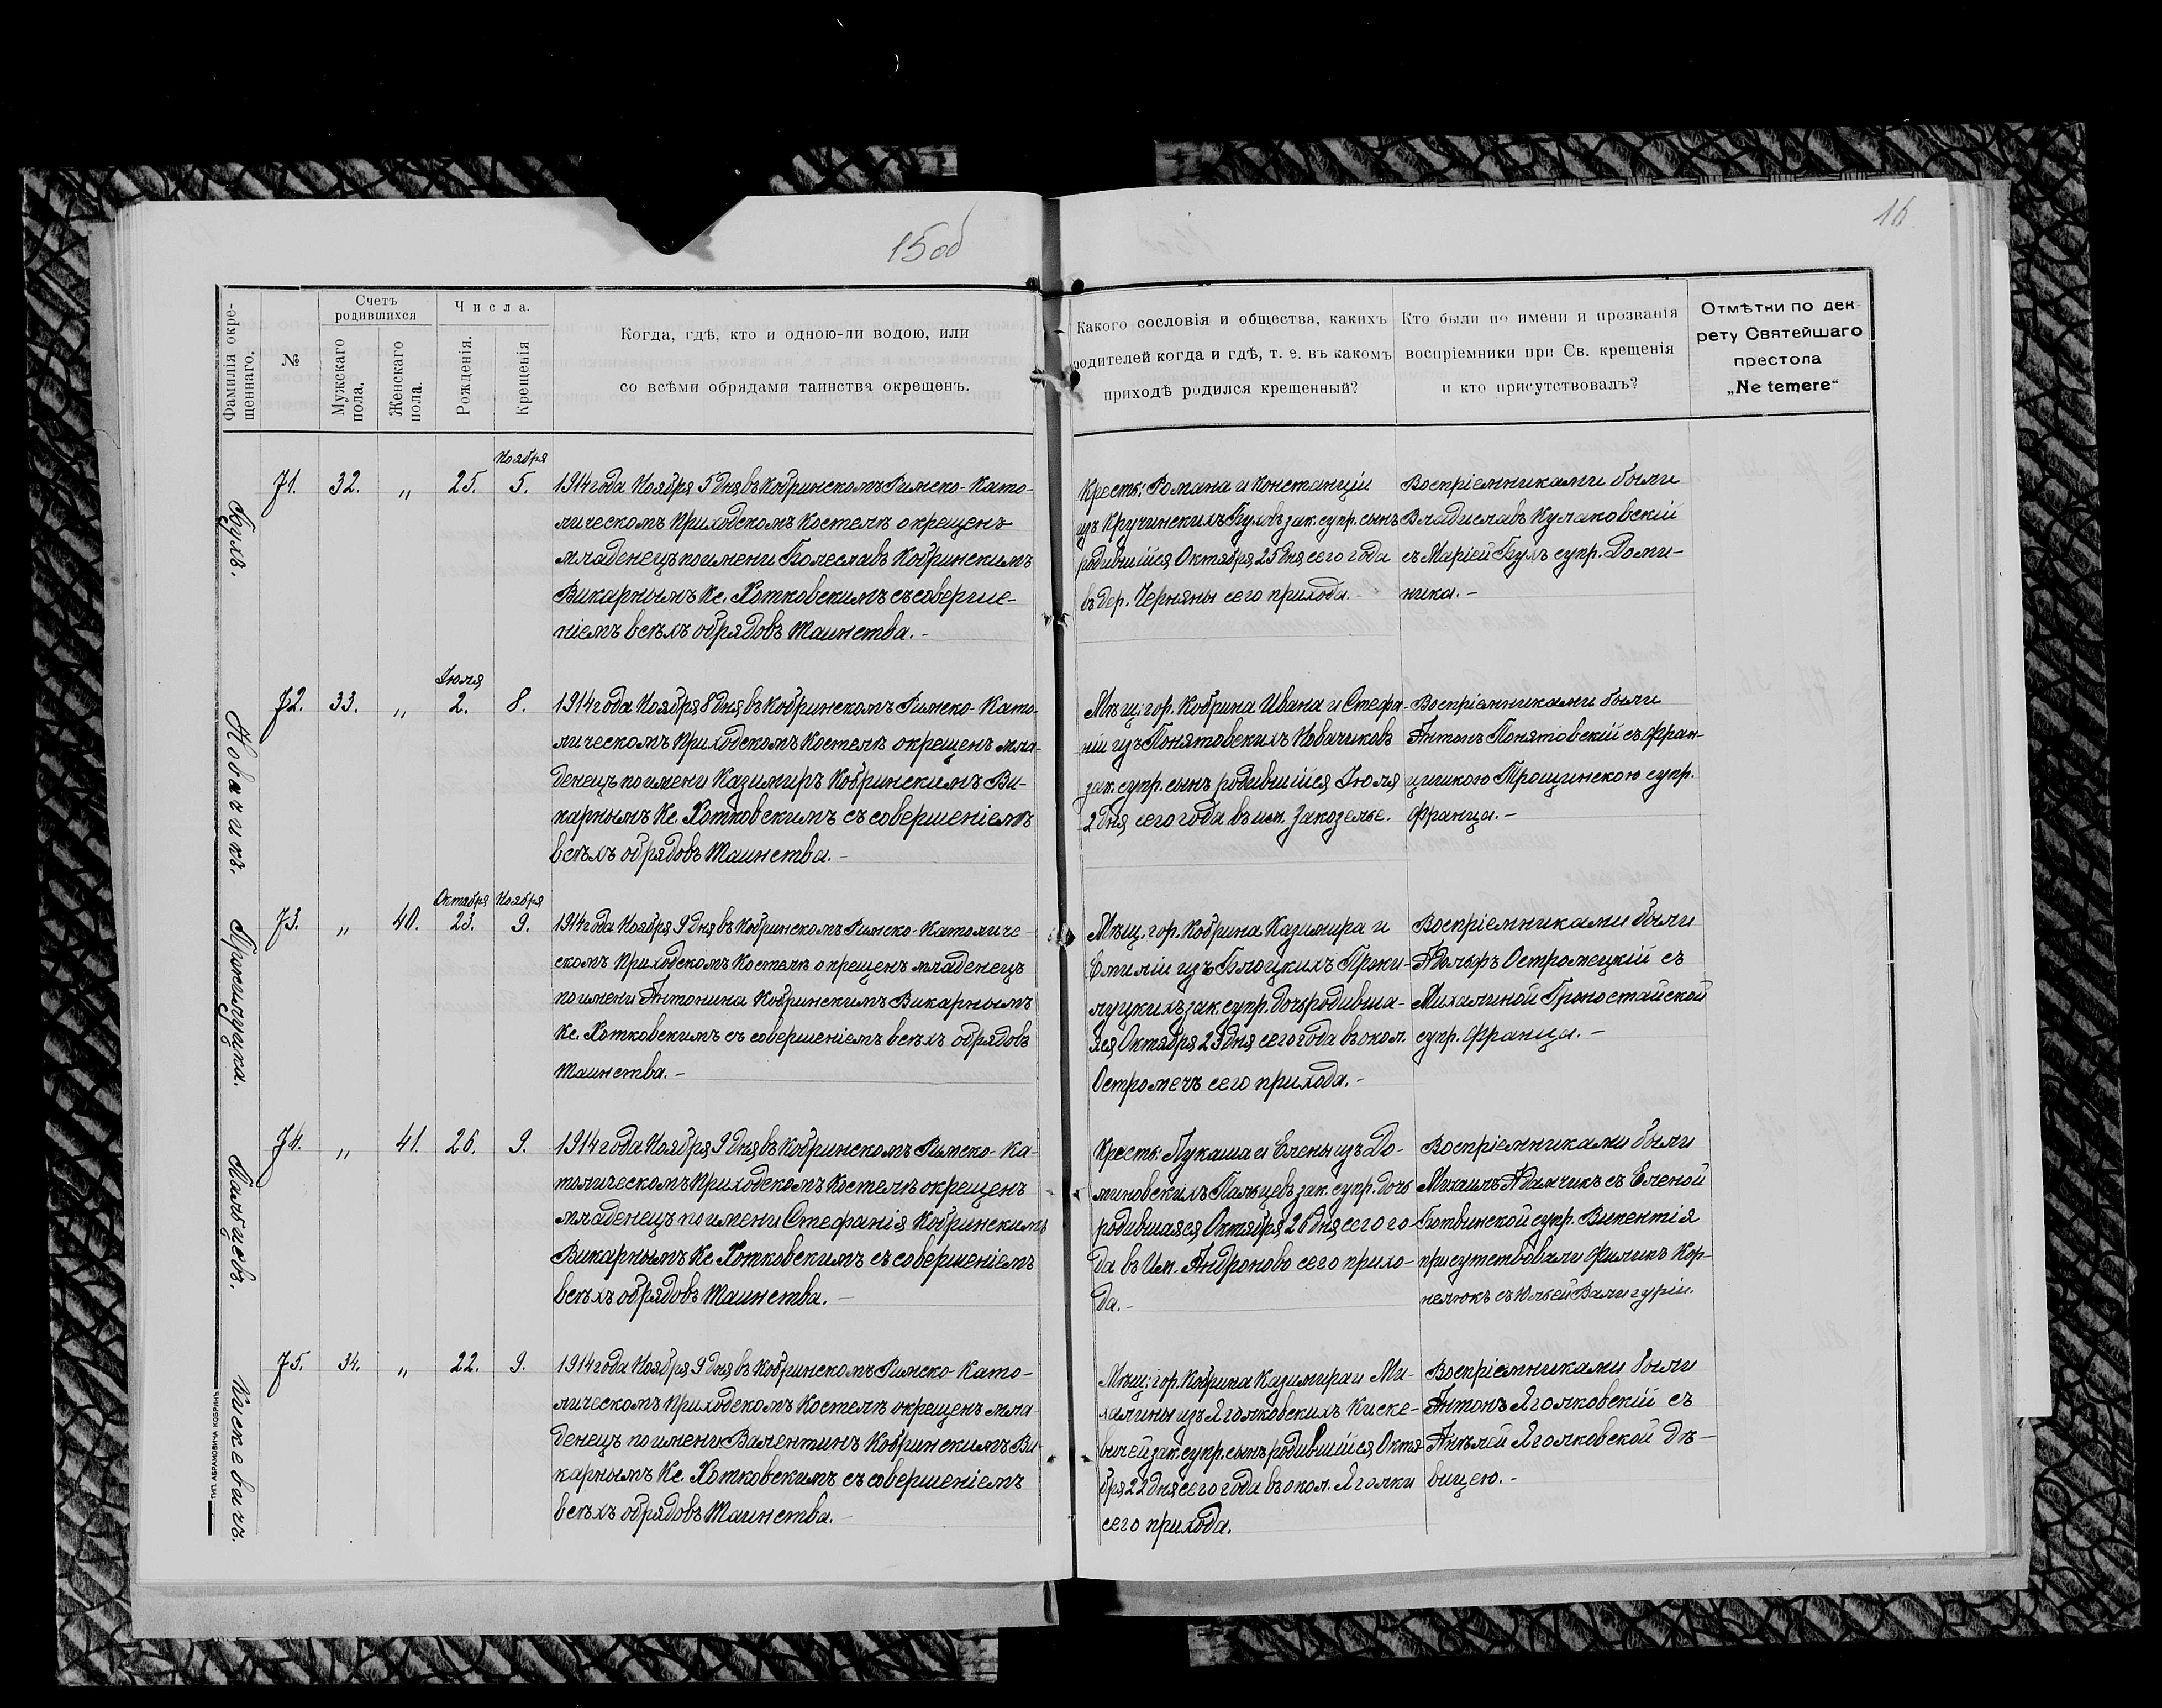 15 об
16
Фамилія окре-
щеннаго.
№
Счетъ
родившихся
Мужскаго
пола.
Женскаго
пола.
Числа.
Рожденія.
Крещенія
Когда, гдѣ, кто и одною-ли водою, или
со всѣми обрядами таинства окрещенъ.
Какого сословія и общества, какихъ
родителей когда и гдѣ, т. е. въ какомъ
приходѣ родился крещенный?
Кто были по имени и прозванія
воспріемники при Св. крещенія
и кто присутствовалъ?
Отмѣтки по дек-
рету Святейшаго
престола
„Ne temere“
Бухъ.
71.
32.
„
25.
Ноября
5.
1914 года Ноября 5 дня въ Кобринскомъ Римско-Като-
лическомъ Приходскомъ Костелѣ окрещенъ
младенецъ по имени Болеславъ Кобринскимъ
Викарнымъ Кс. Хотковскимъ съ соверше-
ніемъ всѣхъ обрядовъ Таинства.-
Крестъ: Романа и Констанціи
изъ Кручинскихъ Буховъ зак. супр. сынъ
родившійся Октября 25 дня сего года
въ дер. Черняны сего прихода.-
Воспріемниками были
Владиславъ Кулаковскій
съ Маріей Бухъ супр. Доми-
ника.-
Новачикъ.
72.
33.
„
Іюля
2.
8.
1914 года Ноября 8 дня въ Кобринскомъ Римско-Като-
лическомъ Приходскомъ Костелѣ окрещенъ мла-
денецъ по имени Казимиръ Кобринскимъ Ви-
карнымъ Кс. Хотковскимъ съ совершеніемъ
всѣхъ обрядовъ Таинства.-
Мѣщ: гор. Кобрина Ивана и Стефа-
ніи изъ Понятовскихъ Новачиковъ
зак. супр. сынъ родившійся Іюля
2 дня сего года въ им. Закозелье.
Воспріемниками были
Антонъ Понятовскій съ Фран-
цишкою Трощинскою супр.
Франца.-
Прекылуцка.
73.
„
40.
Октября
23.
Ноября
9.
1914 года Ноября 9 дня въ Кобринскомъ Римско-Католиче-
скомъ Приходскомъ Костелѣ окрещенъ младенецъ
по имени Антонина Кобринскимъ Викарнымъ
Кс. Хотковскимъ съ совершеніемъ всѣхъ обрядовъ
Таинства.-
Мѣщ. гор. Кобрина Казимира и
Емиліи изъ Блоцкихъ
зак. супр. дочь родивша-
яся Октября 23 дня сего года въ окол.
Остромечъ сего прихода.-
Воспріемниками были
Адольфъ Остромецкій съ
Михалиной Гроностайской
супр. Франца.-
Пальцевъ.
74.
„
41.
26.
9.
1914 года Ноября 9 дня въ Кобринскомъ Римско-Ка-
толическомъ Приходскомъ Костелѣ окрещенъ
младенецъ по имени Стефанія Кобринскимъ
Викарнымъ Кс. Хотковскимъ съ совершеніемъ
всѣхъ обрядовъ Таинства.-
Крестъ. Лукаша и Елены изъ До-
миновскихъ Пальцевъ зак. супр. дочь
родившаяся Октября 26 дня сего го-
да въ Им. Андроново сего прихо-
да.-
Воспріемниками были
Михаилъ Адамчикъ съ Еленой
Ботвинской супр. Викентія
присутствовали Филикъ Кор-
нелюкъ съ Юльей
Кискевичъ.
75.
34.
„
22.
9.
1914 года Ноября 9 дня въ Кобринскомъ Римско-Като-
лическомъ Приходскомъ Костелѣ окрещенъ мла-
денецъ по имени Валентинъ Кобринскимъ Ви-
карнымъ Кс. Хотковскимъ съ совершеніемъ
всѣхъ обрядовъ Таинства.-
Мѣщ: гор. Кобрина Казимира и Ми-
халины изъ Яголковскихъ Киске-
вичей зак. супр. сынъ родившійся Октя-
бря 22 дня сего года въ окол. Яголки
сего прихода.
Воспріемниками были
Антонъ Яголковскій съ
Анѣлей Яголковской дѣ-
вицею.-
ТИП. АБРАМОВИЧА КОБРИНЪ